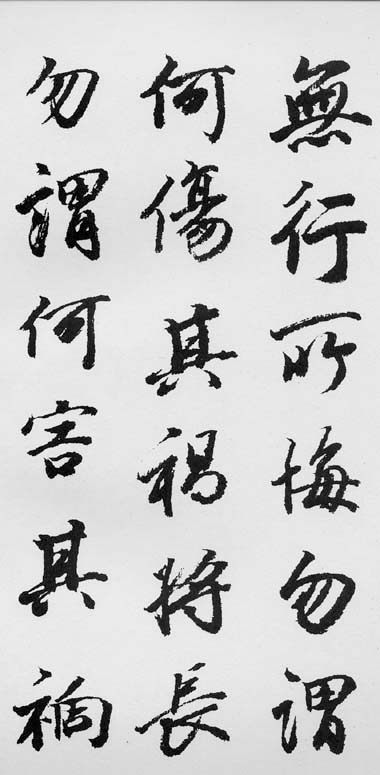 無行所悔勿謂
何傷其禍將長
勿謂何害其禍